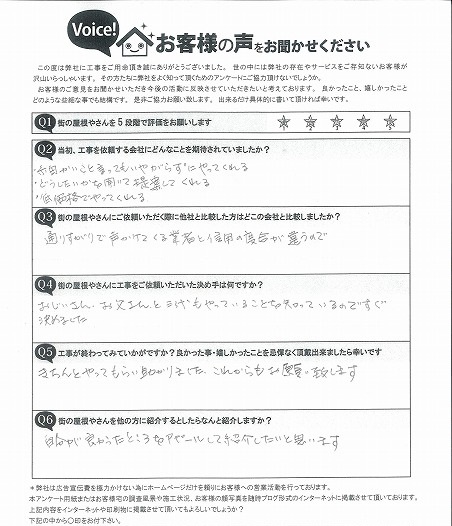 Voice!
お客様の声をお聞かせください
この度は弊社に工事をご用命頂き誠にありがとうございました。世の中には弊社の存在やサービスをご存知ないお客様が
沢山いらっしゃいます。その方たちに弊社をよく知って頂くためのアンケートにご協力頂けないでしょうか。
お客様のご意見をお聞かせいただき今後の活動に反映させていただきたいと考えております。良かったこと、嬉しかったこと
どのような些細な事でも結構です。是非ご協力お願い致します。出来るだけ具体的に書いて頂ければ幸いです。
Q1 街の屋根やさんを5段階で評価をお願いします ★ ★ ★ ★ ★
Q2 当初、工事を依頼する会社にどんなことを期待されていましたか？
・細かいこと言ってもいやがらずにやってくれる
・どうしたいかを聞いて提案してくれる
・低価格でやってくれる
Q3 街の屋根やさんにご依頼いただく際に他社と比較した方はどこの会社と比較しましたか？
通りすがりで声かけてくる業者と信用の度合が違うので
Q4 街の屋根やさんに工事をご依頼いただいた決め手は何ですか？
おじいさん、お父さんと三代もやっていることを知っているのですぐ
決めました
Q5 工事が終わってみていかがですか？良かった事・嬉しかったことを忌憚なく頂戴出来ましたら幸いです
きちんとやってもらい助かりました、これからもお願い致します
Q6 街の屋根やさんを他の方に紹介するとしたらなんと紹介しますか？
自分が良かったところをアピールして紹介したいと思います
＊弊社は広告宣伝費を極力かけない為にホームページだけを頼りにお客様への営業活動を行っております。
本アンケート用紙またはお客様宅の調査風景や施工状況、お客様の顔写真を随時ブログ形式のインターネットに掲載させて頂いております。
上記内容をインターネットや印刷物に掲載させて頂いてもよろしいでしょうか？
下記の中から○印をお付け下さい。